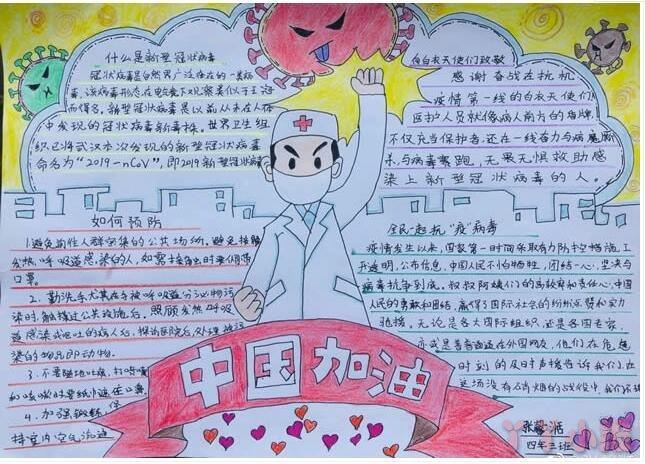 什么是新型冠状病毒
冠状病毒是自然界广泛存在的一类病
毒,该病毒形态在
而得名。新型冠状病毒是以前从未在人体
中发现的冠状病毒新毒株。世界卫生组
织已将武汉本次发现的新型冠状病毒
命名为“2019-nCoV”,即2019新型冠状病毒
向白衣天使们致敬
感谢奋战在抗机
疫情第一线的白衣天使们
医护人员就像病人前方的盾牌
不仅充当保护者,还在一线奋力与病魔厮
杀,与病毒赛跑,无畏无惧救助感
染上新型冠状病毒的人。
如何预防
1.避免前往人群密集的公共场所。避免接触
发热呼吸道感染的人,如需接触时要佩戴
口罩。
2.勤洗手,尤其在手被呼吸道分泌物污
染时、触摸过公共设施后、照顾发热呼吸
道感染或呕吐的病人后、探访医院后,处理被污
染的物品即动物
3.不要随地吐痰,打喷嚏
和咳嗽时要纸巾遮住口鼻
4.加强锻炼,保
持室内空气流通
全民一起抗“疫”病毒
疫情发生以来,国家第一时间采取有力防控措施,工
开透明,公布信息,中国人民不怕牺牲,团结一心,坚决与
病毒抗争到底。叔叔阿姨们的高效率和责任心,中国
人民的勇敢和团结,赢得了国际社会的纷纷点赞和实力
驰援。无论是各大国际组织,还是各国专家,
亦或是普普通通在外国网友,他们在危急
时刻的及时声援告诉我们,在
这场没有硝烟的战役中,我们不孤
中国加油
四年三班